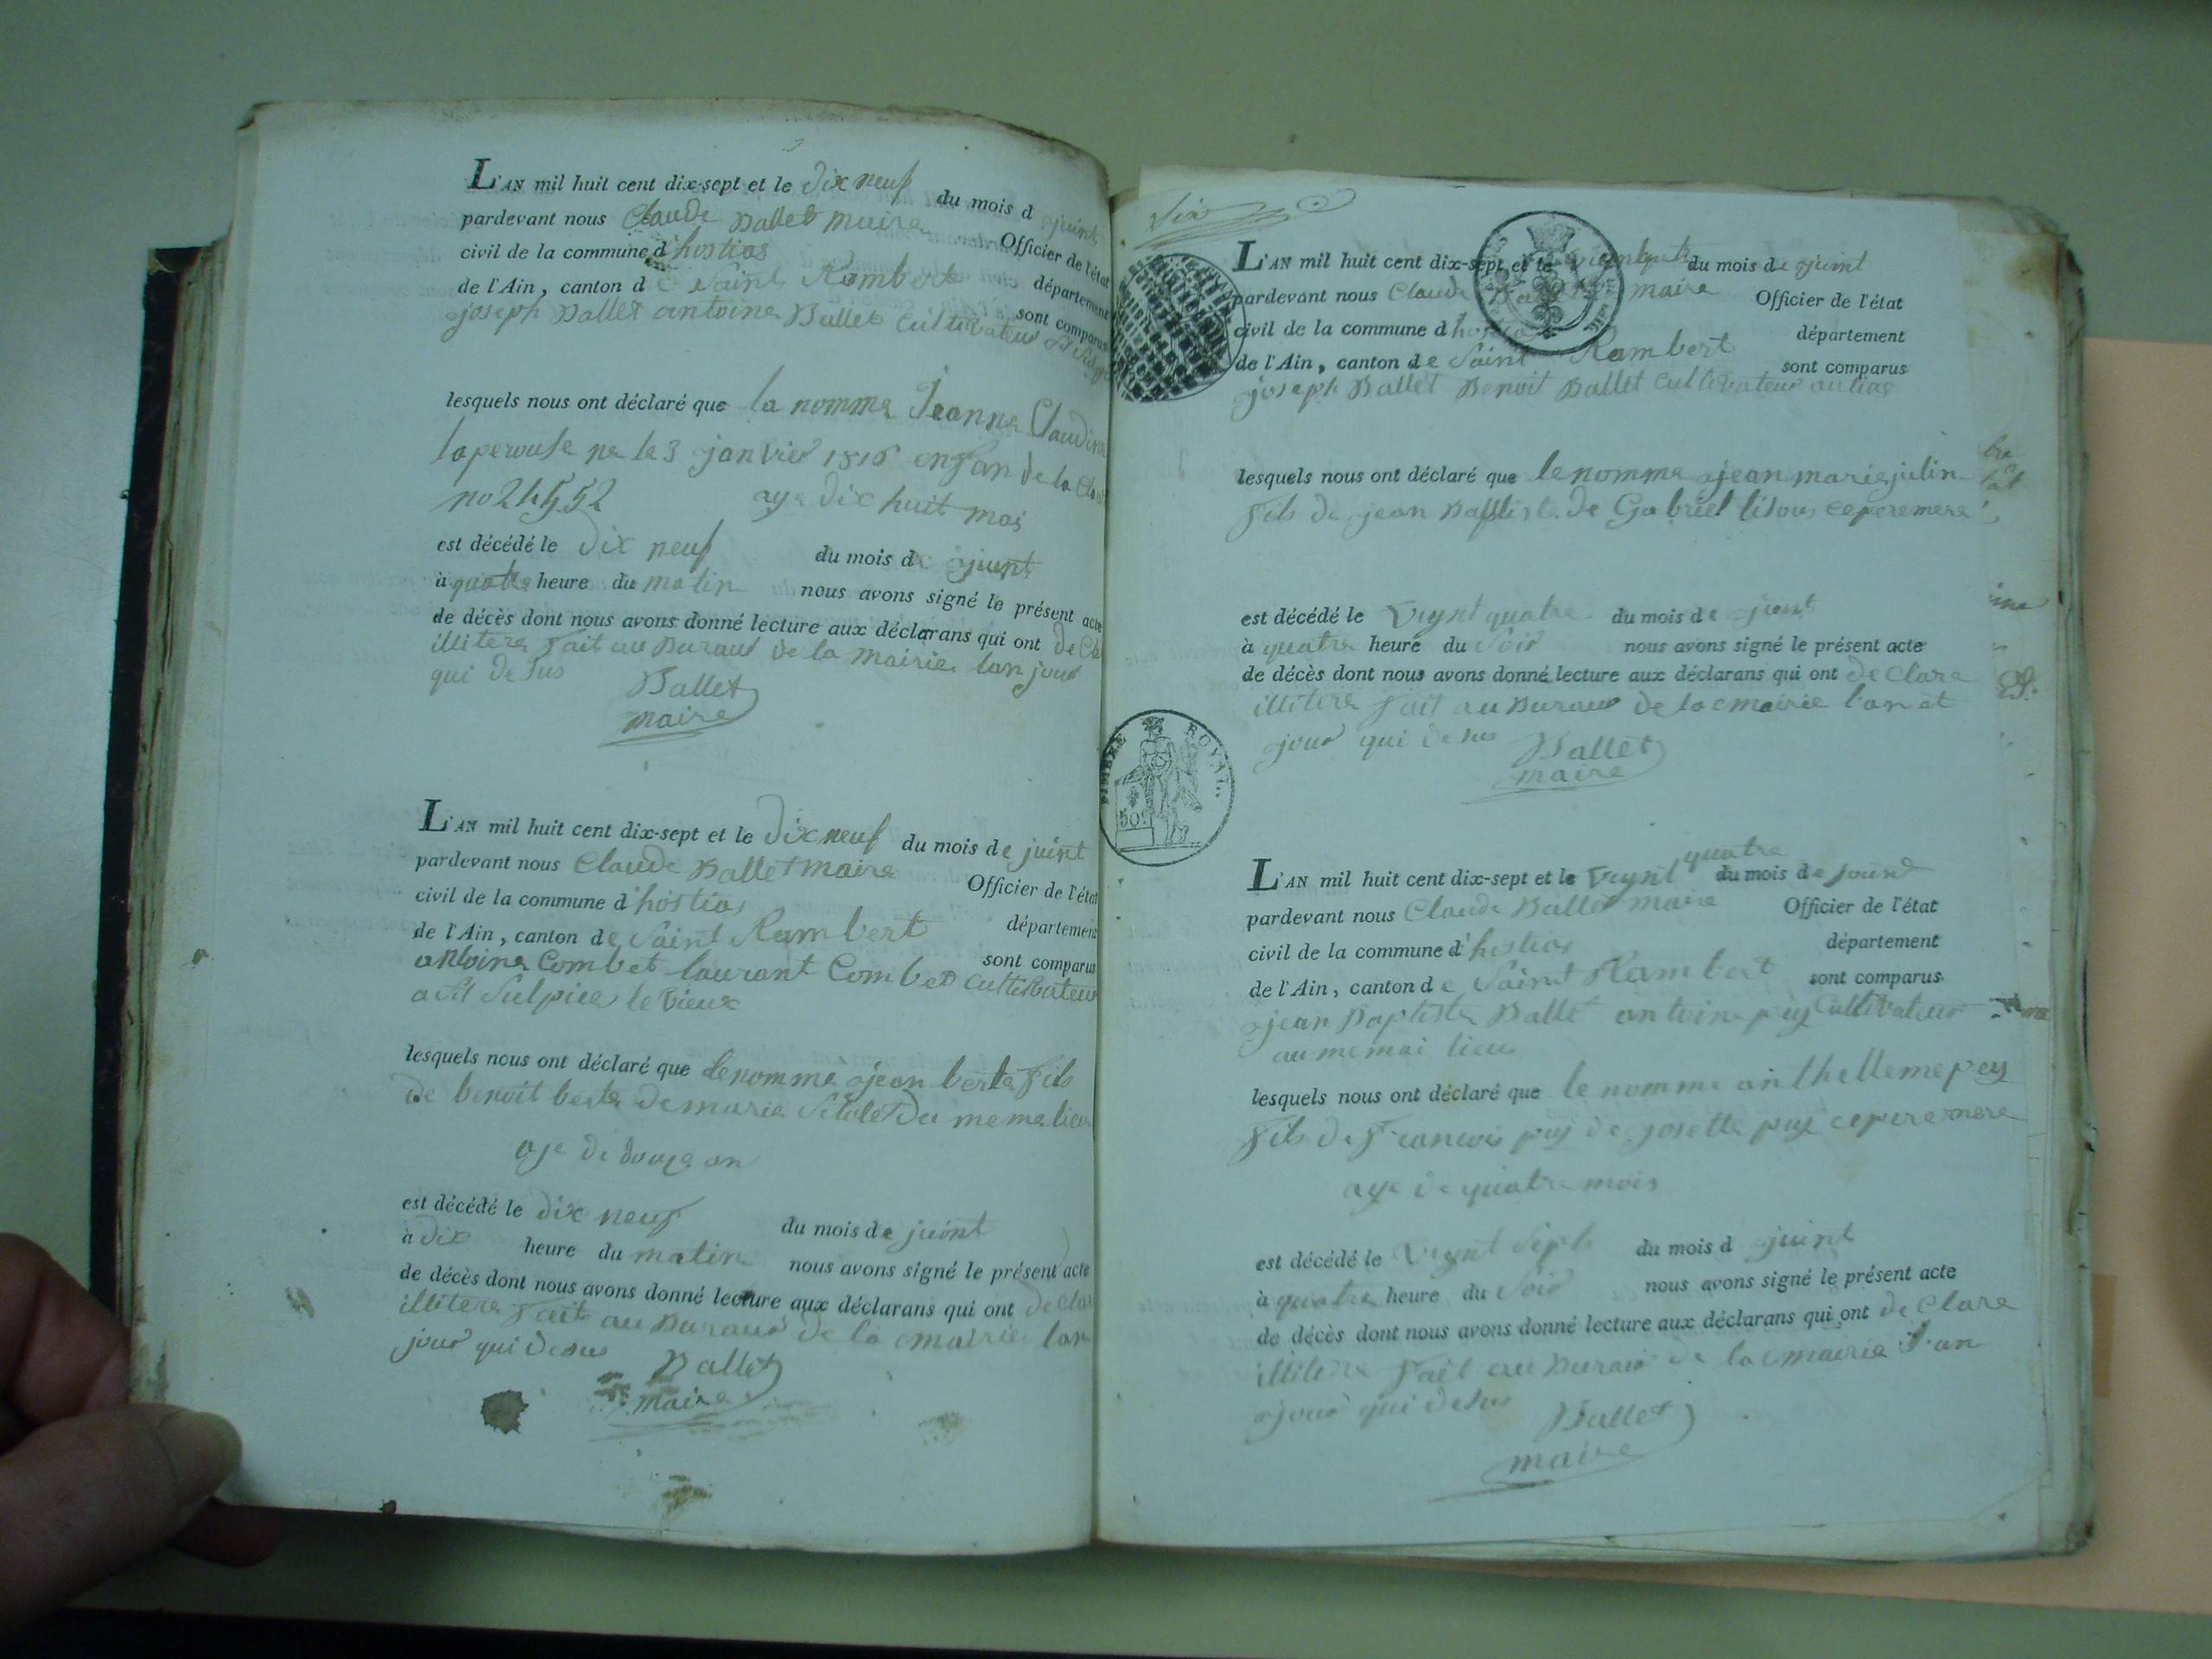 L'AN mil huit cent dix-sept et le dix neuf du mois d juint
pardevant nous Claude Ballet maire Officier de l'état
civil de la commune d hostias département
de l'Ain, canton de Saint Rambert sont comparus
joseph Ballet antoine Ballet Cultivateur
lesquels nous ont déclaré que la nomma Jeanne Claudine
laperouse ne le 3 janvier 1816 enfan de la
no 24552 aye dix huit mois
est décédé le dix neuf du mois de juint
à quatre heure du matin nous avons signé le présent acte
de décès dont nous avons donné lecture aux déclarans qui ont
illitera fait au Buraud de la mairie lan jour
qui desus Ballet
maire
L'AN mil huit cent dix-sept et le dix neuf du mois de juint
pardevant nous Claude Ballet maire Officier de l'état
civil de la commune d hostias département
de l'Ain, canton de Saint Rambert sont comparus
antoine Combet laurant Combet Cultivateur
a St Sulpice le vieux
lesquels nous ont déclaré que le nomme jean berta fils
de benoit berta de marie du mema lieu
aje de douze an
est décédé le dix neuf du mois de juint
à dix heure du matin nous avons signé le présent acte
de décès dont nous avons donné lecture aux déclarans qui ont
illitera fait au Buraud de la mairie lan
jour qui desus Ballet
maire
Six
L'AN mil huit cent dix-sept et le du mois de juint
pardevant nous Claude Ballet maire Officier de l'état
civil de la commune d hostias département
de l'Ain, canton de Saint Rambert sont comparus
joseph Ballet Benoit Ballet Cultivateur
lesquels nous ont déclaré que le nomma jean marie julin
fils de jean Baptiste de Gabriel ce pere mere
est décédé le vynt quatre du mois de juint
à quatre heure du Soir nous avons signé le présent acte
de décès dont nous avons donné lecture aux déclarans qui ont de Clare
illitera fait au Buraud de la mairie l'an et
jour qui desus Ballet
maire
TIMBRE ROYAL.
50c
L'AN mil huit cent dix-sept et le vynt quatre du mois de
pardevant nous Claude Ballet maire Officier de l'état
civil de la commune d hostias département
de l'Ain, canton de Saint Rambert sont comparus
jean Baptiste Ballet antoine puy Cultivateur
au memai lieu
lesquels nous ont déclaré que le nomme anthelleme pey
fils de Francois puy de josette puy ce pere mere
aye de quatre mois
est décédé le vynt Sept du mois d juint
à quatre heure du Soir nous avons signé le présent acte
de décès dont nous avons donné lecture aux déclarans qui ont de Clare
illitera fait au Buraud de la mairie l'an
jour qui desus Ballet
maire